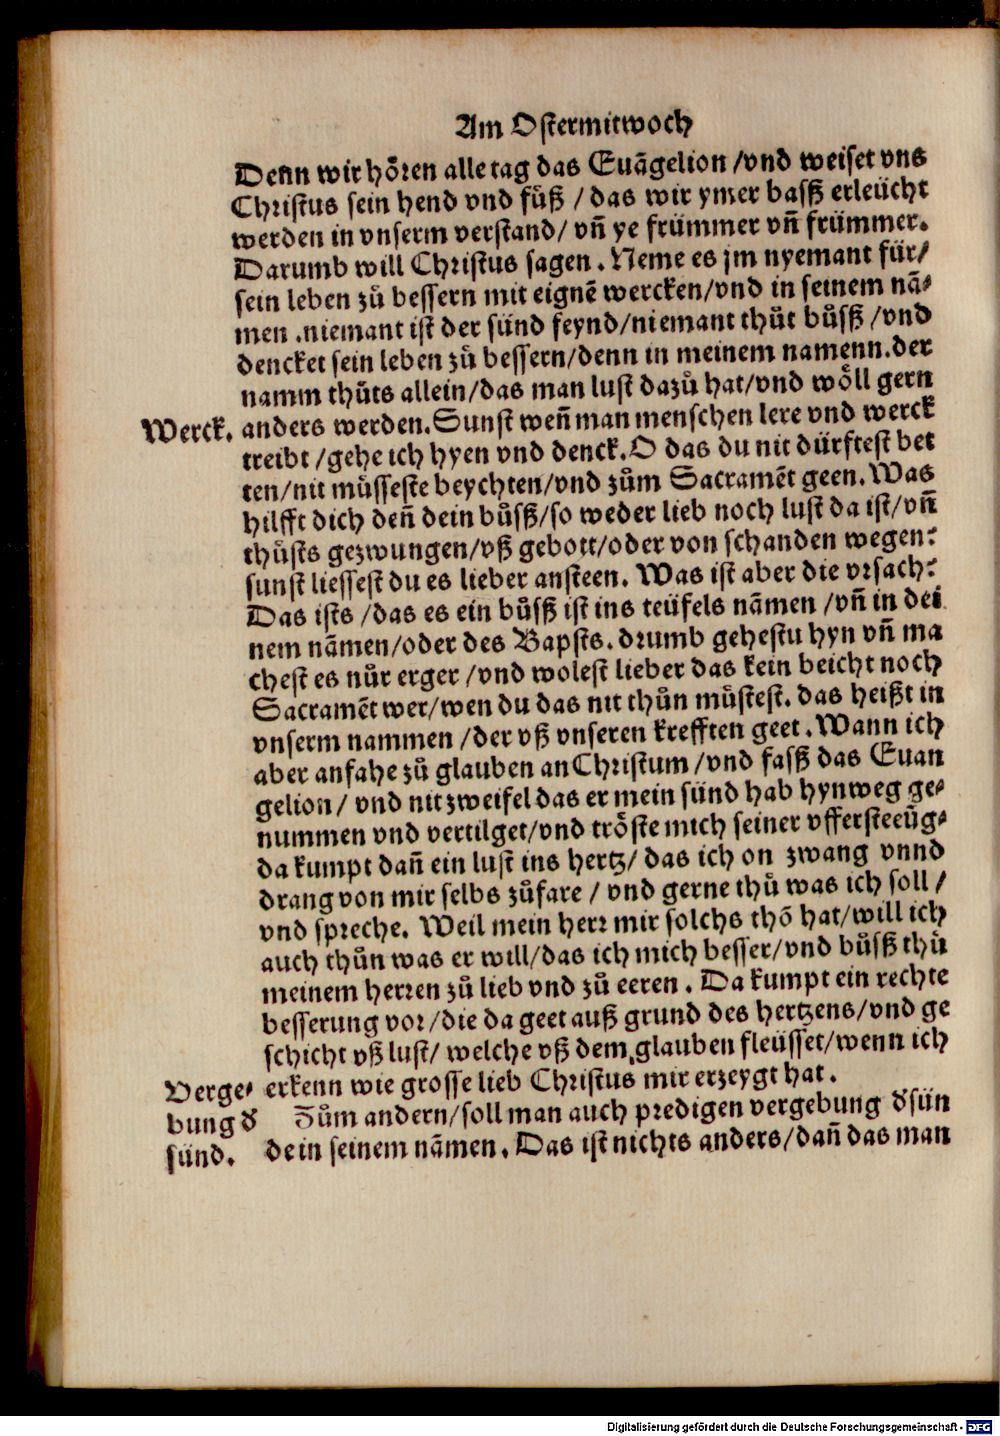 Am Ostermitwoch
Deñn wir hören alle tag das Euãgelion /vnd weiset vns
Christus sein hend vnd fuͤß / das wir ymer basß erleücht
werden in vnserm verstand/ vñ ye frümmer vñ frümmer.
Darumb will Christus sagen . Neme es jm nyemant für/
sein leben zuͦ bessern mit eignẽ wercken/vnd in seinem nã⸗
men .niemant ist der sünd feynd/niemant thuͦt buͦsß /vnd
dencket sein leben zuͦ bessern/denn in meinem namenn.der
namm thuͦts allein/das man lust dazuͦ hat/vnd woͤll gern
Werck. anders werden. Sunst weñ man menschen lere vnd werck
treibt /gehe ich hyen vnd denck. O das du nit dürftest bet
ten/nit muͤsseste beychten/vnd zuͦm Sacramẽt geen. Was
hilfft dich deñ dein buͦsß/so weder lieb noch lust da ist/vñ
thuͦsts gezwungen/vß gebott/oder von schanden wegen:
sunst liessest du es lieber ansteen. Was ist aber die vrsach:
Das ists /das es ein buͦsß ist ins teüfels nãmen /vñ in dei
nem nãmen/oder des Bapsts. drumb gehestu hyn vñ ma
chest es nuͦr erger /vnd wolest lieber das kein beicht noch
Sacramẽt wer/wen du das nit thuͦn muͤstest. das heißt in
vnserm nammen /der vß vnseren krefften geet . Wann ich
aber anfahe zuͦ glauben an Christum /vnd fasß das Euan
gelion/ vnd nit zweifel das er mein sünd hab hynweg ge⸗
nummen vnd vertilget/vnd troͤste mich seiner vffersteeũg⸗
da kumpt dañ ein lust ins hertz/ das ich on zwang vnnd
drang von mir selbs zuͦfare / vnd gerne thuͦ was ich soll /
vnd spreche. Weil mein herr mir solchs thõ hat/will ich
auch thuͦn was er will/das ich mich besser/vnd buͦsß thuͦ
meinem herren zuͦ lieb vnd zuͦ eeren . Da kumpt ein rechte
besserung vor /die da geet auß grund des hertzens/vnd ge
schicht vß lust/ welche vß dem glauben fleüsset/wenn ich
Verge⸗ erkenn wie grosse lieb Christus mir erzeygt hat .
bung ď Zuͦm andern/soll man auch predigen vergebung ď sün
sünd. de in seinem nãmen . Das ist nichts anders/dañ das man
Digitalisierung gefördert durch die Deutsche Forschungsgemeinschaft - DFG